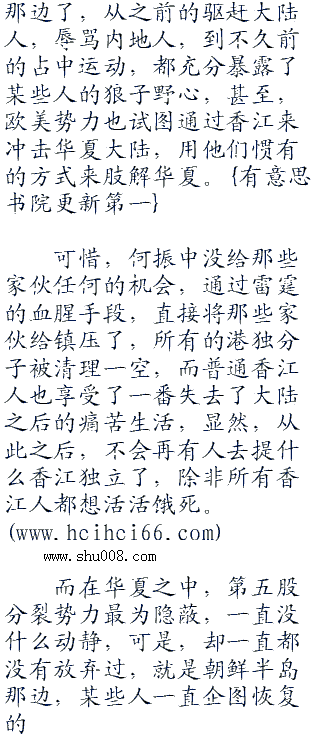 那边了，从之前的驱赶大陆
人，辱骂内地人，到不久前
的占中运动，都充分暴露了
某些人的狼子野心，甚至，
欧美势力也试图通过香江来
冲击华夏大陆，用他们惯有
的方式来肢解华夏。{有意思
书院更新第一}
可惜，何振中没给那些
家伙任何的机会，通过雷霆
的血腥手段，直接将那些家
伙给镇压了，所有的港独分
子被清理一空，而普通香江
人也享受了一番失去了大陆
之后的痛苦生活，显然，从
此之后，不会再有人去提什
么香江独立了，除非所有香
江人都想活活饿死。
(www.hcihci66.com)
www.shu008.com
而在华夏之中，第五股
分裂势力最为隐蔽，一直没
什么动静，可是，却一直都
没有放弃过，就是朝鲜半岛
那边，某些人一直企图恢复
的